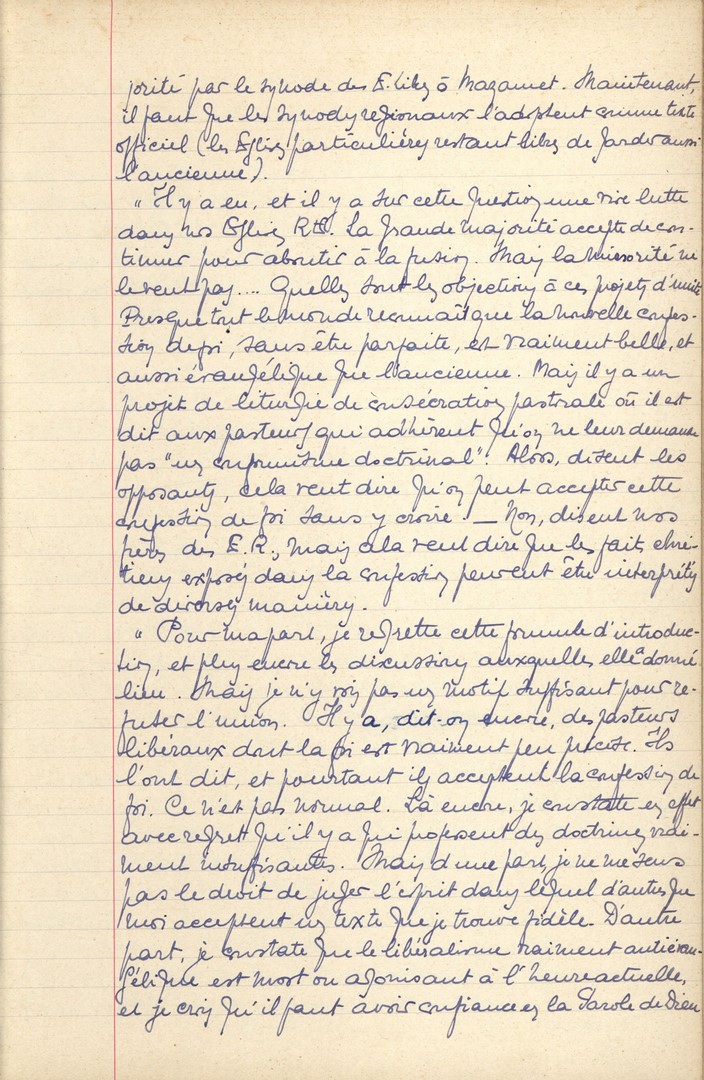 jorité par le synode des E. libres à Mazamet. Maintenant,
il faut que les synodes régionaux l'adoptent comme texte
officiel (les Eglises particulières restant libres de garder aussi
l'ancienne).
" Il y a eu, et il y a sur cette question une vive lutte
dans nos Eglises Rées. La grande majorité accepte de con-
tinuer pour aboutir à la fusion. Mais la minorité ne
le veut pas.... Quelles sont les objections à ces projets d'unité
Presque tout le monde reconnaît que la nouvelle confes-
sion de foi, sans être parfaite, est vraiment belle, et
aussi évangélique que l'ancienne. Mais il y a un
projet de liturgie de consécration pastorale où il est
dit aux pasteurs qui adhèrent qu'on ne leur demande
pas "un conformisme doctrinal". Alors, disent les
opposants, cela veut dire qu'on peut accepter cette
confession de foi sans y croire. _ Non, disent nos
frères des E.R., mais cela veut dire que les faits chré-
tiens exposés dans la confession peuvent être interprétés
de diverses manières.
" Pour ma part, je regrette cette formule d'introduc-
tion, et plus encore les discussions auxquelles elle a donné
lieu. Mais je n'y vois pas un motif suffisant pour re-
fuser l'union. Il y a, dit-on encore, des pasteurs
libéraux dont la foi est vraiment peu précise. Ils
l'ont dit, et pourtant ils acceptent la confession de
foi. Ce n'est pas normal. Là encore, je constate en effet
avec regret qu'il y a qui professent des doctrines vrai-
ment insuffisantes. Mais d'une part, je ne me sens
pas le droit de juger l'esprit dans lequel d'autres que
moi acceptent un texte que je trouve fidèle. D'autre
part, je constate que le libéralisme vraiment antiévan-
gélique est mort ou agonisant à l'heure actuelle,
et je crois qu'il faut avoir confiance en la Parole de Dieu